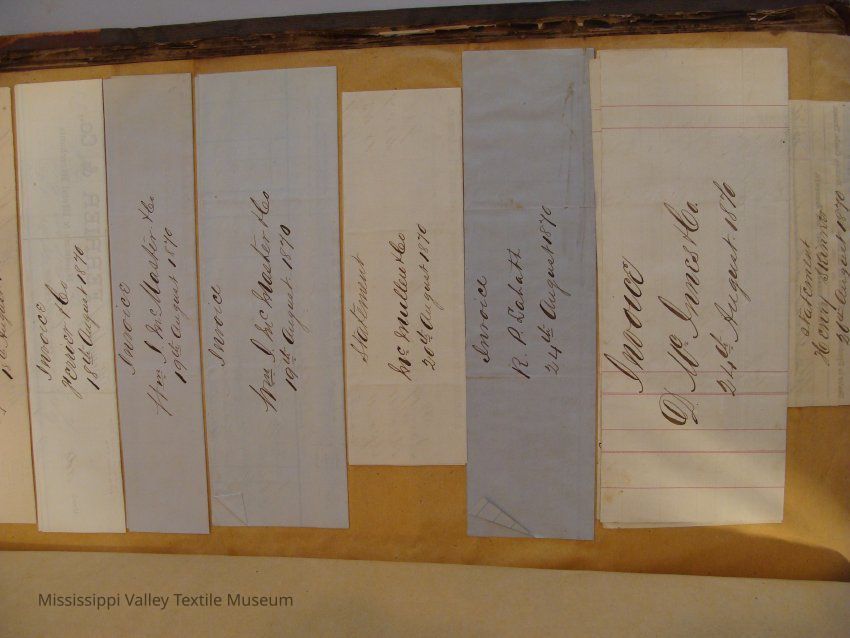 Invoice
18th August 1870
Invoice
Wm J McMaster & Co
19th August 1870
Invoice
Wm J McMaster & Co
19th August 1870
Statement
McMullen & Co
20th August 1870
Invoice
R. P.
24th August 1870
Invoice
D. McInnes & Co.
24th August 1870
Statement
Henry
26th August 1870
Mississippi Valley Textile Museum